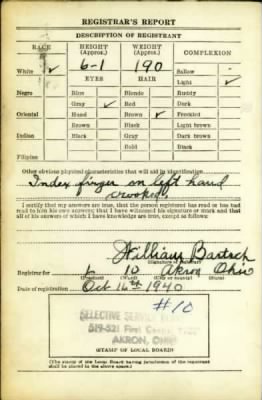 REGISTRAR'S REPORT
DESCRIPTION OF REGISTRANT
RACE HEIGHT (Approx.) WEIGHT (Approx.) COMPLEXION
6-1 190
White ✓ Sallow
EYES HAIR Light ✓
Negro Blue Blonde Ruddy
Gray ✓ Red Dark
Oriental Hazel Brown ✓ Freckled
Brown Black Light brown
Indian Black Gray Dark brown
Bald Black
Filipino
Other obvious physical characteristics that will aid in identification
Index finger on left hand
crooked.
I certify that my answers are true; that the person registered has read or has had
read to him his own answers; that I have witnessed his signature or mark and that
all of his answers of which I have knowledge are true, except as follows:
William Bartsch
(Signature of registrar)
Registrar for 6 10 Akron Ohio
(Precinct) (Ward)
Date of registration Oct 16th 1940
#10
SELECTIVE SERVICE
519-521 First
AKRON, OHIO
(STAMP OF LOCAL BOARD)
(The stamp of the Local Board having jurisdiction of the registrant
shall be placed in the above space.)